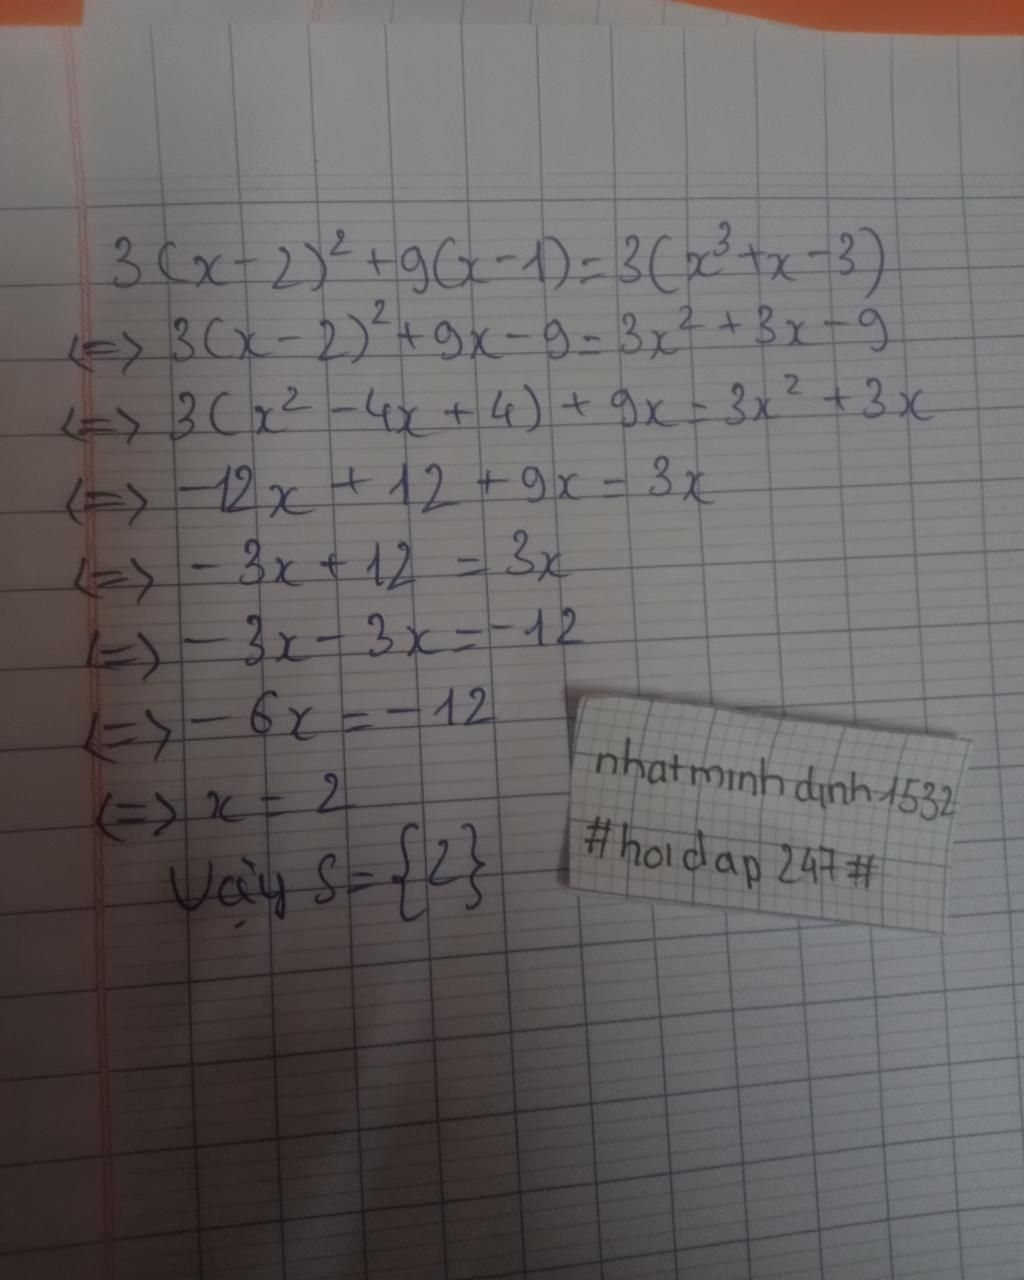 3(x-2)² + 9(x-1) = 3(x³+x-3)
<=> 3(x-2)² + 9x - 9 = 3x² + 3x - 9
<=> 3(x² - 4x + 4) + 9x = 3x² + 3x
<=> -12x + 12 + 9x = 3x
<=> - 3x + 12 = 3x
<=> - 3x - 3x = -12
<=> - 6x = - 12
<=> x = 2
Vậy S = {2}
nhatminhdinh1532
#hoidap247#